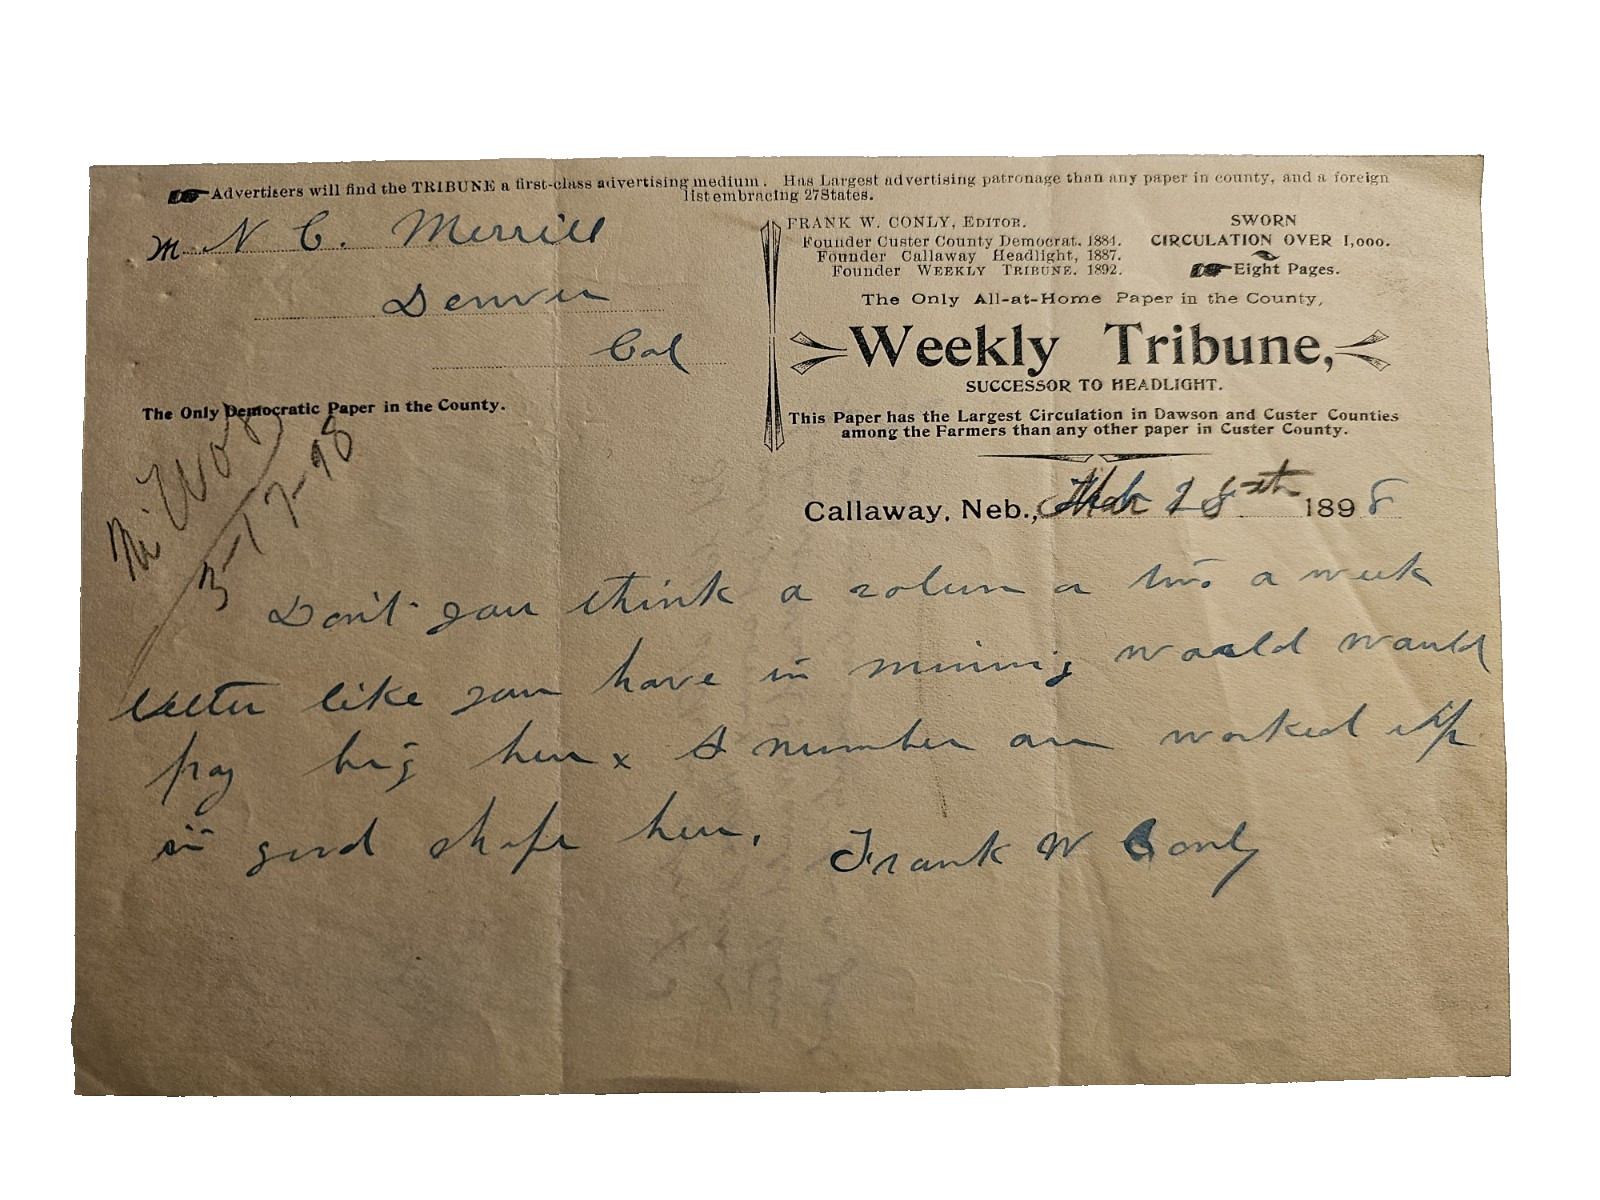 Advertisers will find the TRIBUNE a first-class advertising medium. Has Largest advertising patronage than any paper in county, and a foreign
list embracing 27 States.
M N C. Merrill
Denver
Col
The Only Democratic Paper in the County.
FRANK W. CONLY, EDITOR.
Founder Custer County Democrat. 1881.
Founder Callaway Headlight, 1887.
Founder WEEKLY TRIBUNE. 1892.
SWORN
CIRCULATION OVER 1,000.
Eight Pages.
The Only All-at-Home Paper in the County,
Weekly Tribune,
SUCCESSOR TO HEADLIGHT.
This Paper has the Largest Circulation in Dawson and Custer Counties
among the Farmers than any other paper in Custer County.
3-17-98
Callaway, Neb., 1898
Don't you think a colum or two a week
letter like you have in mining would would
pay big here x A number are worked up
in good shape here.
Frank W Conly